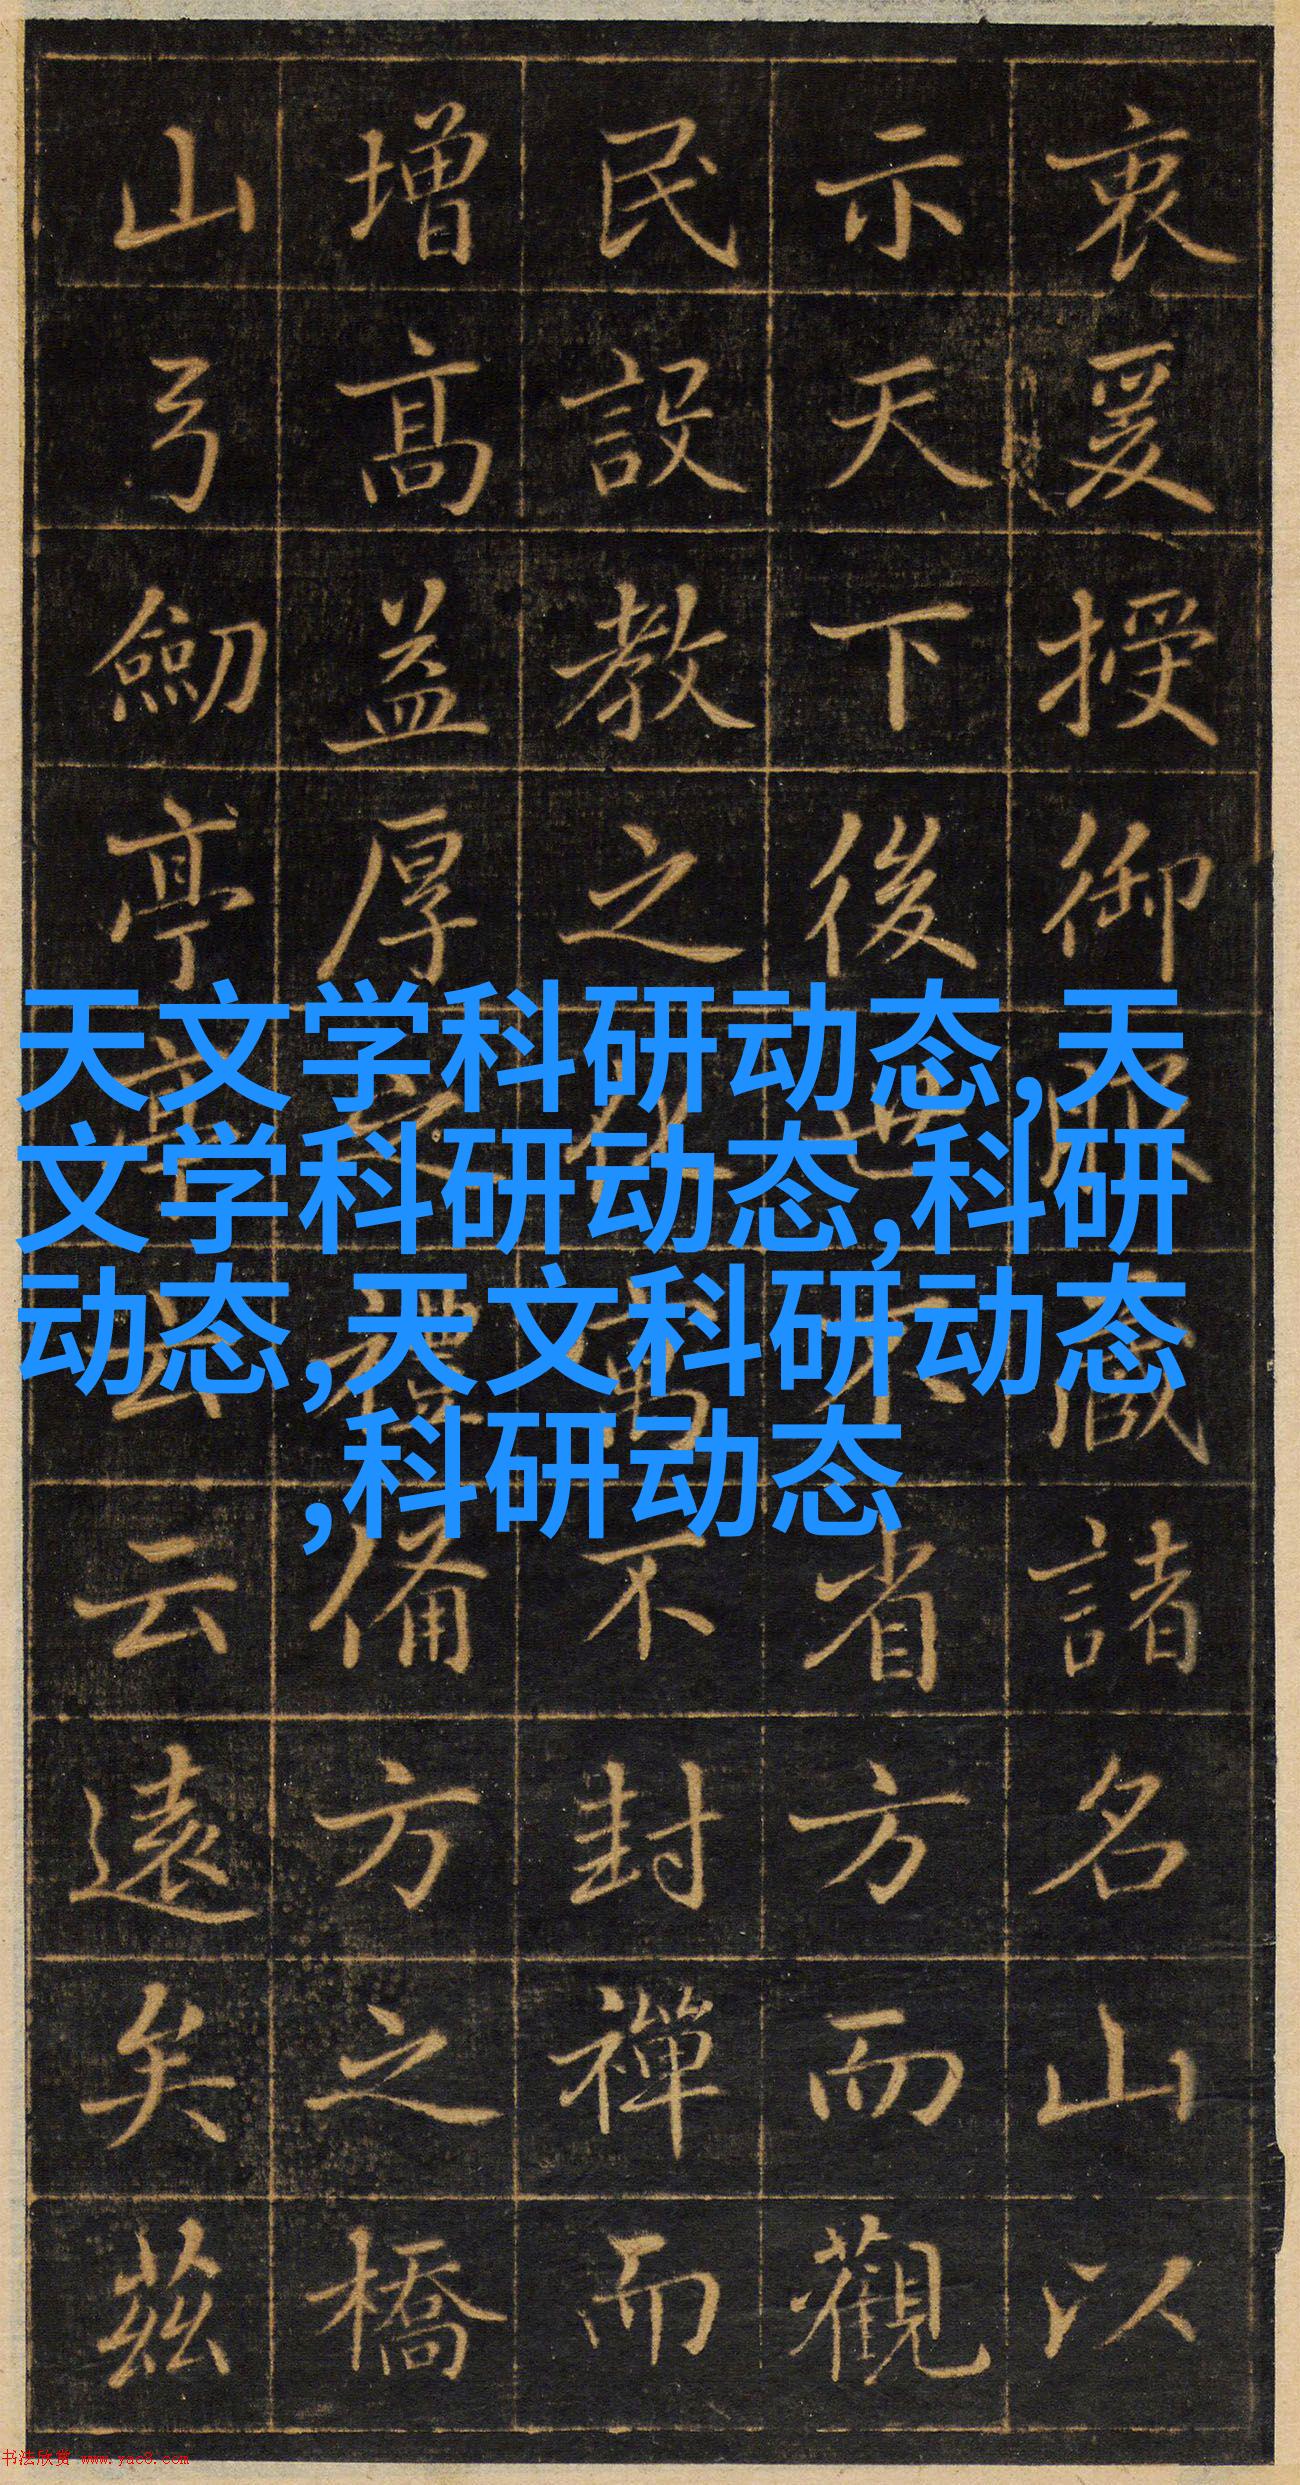 衷爰授御藏諸名山以
示天下後世不省方而觀
民設教之不封禪而
增高益厚之禮備方之橋
山弓劒亭亭云云遠矣茲
天文学科研动态,天
文学科研动态,科研
动态,天文科研动态
,科研动态
书法欣赏 www.yac8.com